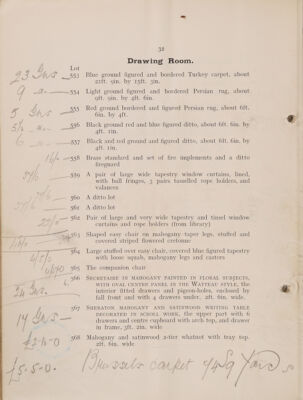 32
Drawing Room.
Lot
23 Gns 553 Blue ground figured and bordered Turkey carpet, about
21ft. 9in. by 15ft. 3in.
9 554 Light ground figured and bordered Persian rug, about
9ft. 9in. by 4ft. 6in.
5 Gns 555 Red ground bordered and figured Persian rug, about 6ft.
6in. by 4ft.
5½ 556 Black ground red and blue figured ditto, about 6ft. 6in. by
4ft. 1in.
6 557 Black and red ground and figured ditto, about 6ft. 6in. by
4ft. 1in.
558 Brass standard and set of fire implements and a ditto
fireguard
559 A pair of large wide tapestry window curtains, lined,
with ball fringes, 3 pairs tasselled rope holders, and
valances
560 A ditto lot
561 A ditto lot
562 Pair of large and very wide tapestry and tinsel window
curtains and rope holders (from library)
563 Shaped easy chair on mahogany taper legs, stuffed and
covered striped flowered cretonne
564 Large stuffed over easy chair, covered blue figured tapestry
with loose squab, mahogany legs and castors
565 The companion chair
24 Gns. 566 Secretaire in mahogany painted in floral subjects,
with oval centre panel in the Watteau style, the
interior fitted drawers and pigeon-holes, enclosed by
fall front and with 4 drawers under, 2ft. 6in. wide.
14 Gns 567 Sheraton mahogany and satinwood writing table
decorated in scroll work, the upper part with 6
drawers and centre cupboard with arch top, and drawer
in frame, 3ft. 2in. wide
568 Mahogany and satinwood 2-tier whatnot with tray top,
2ft. 6in. wide
£5-5-0. Brussels carpet 94 Sq Yards